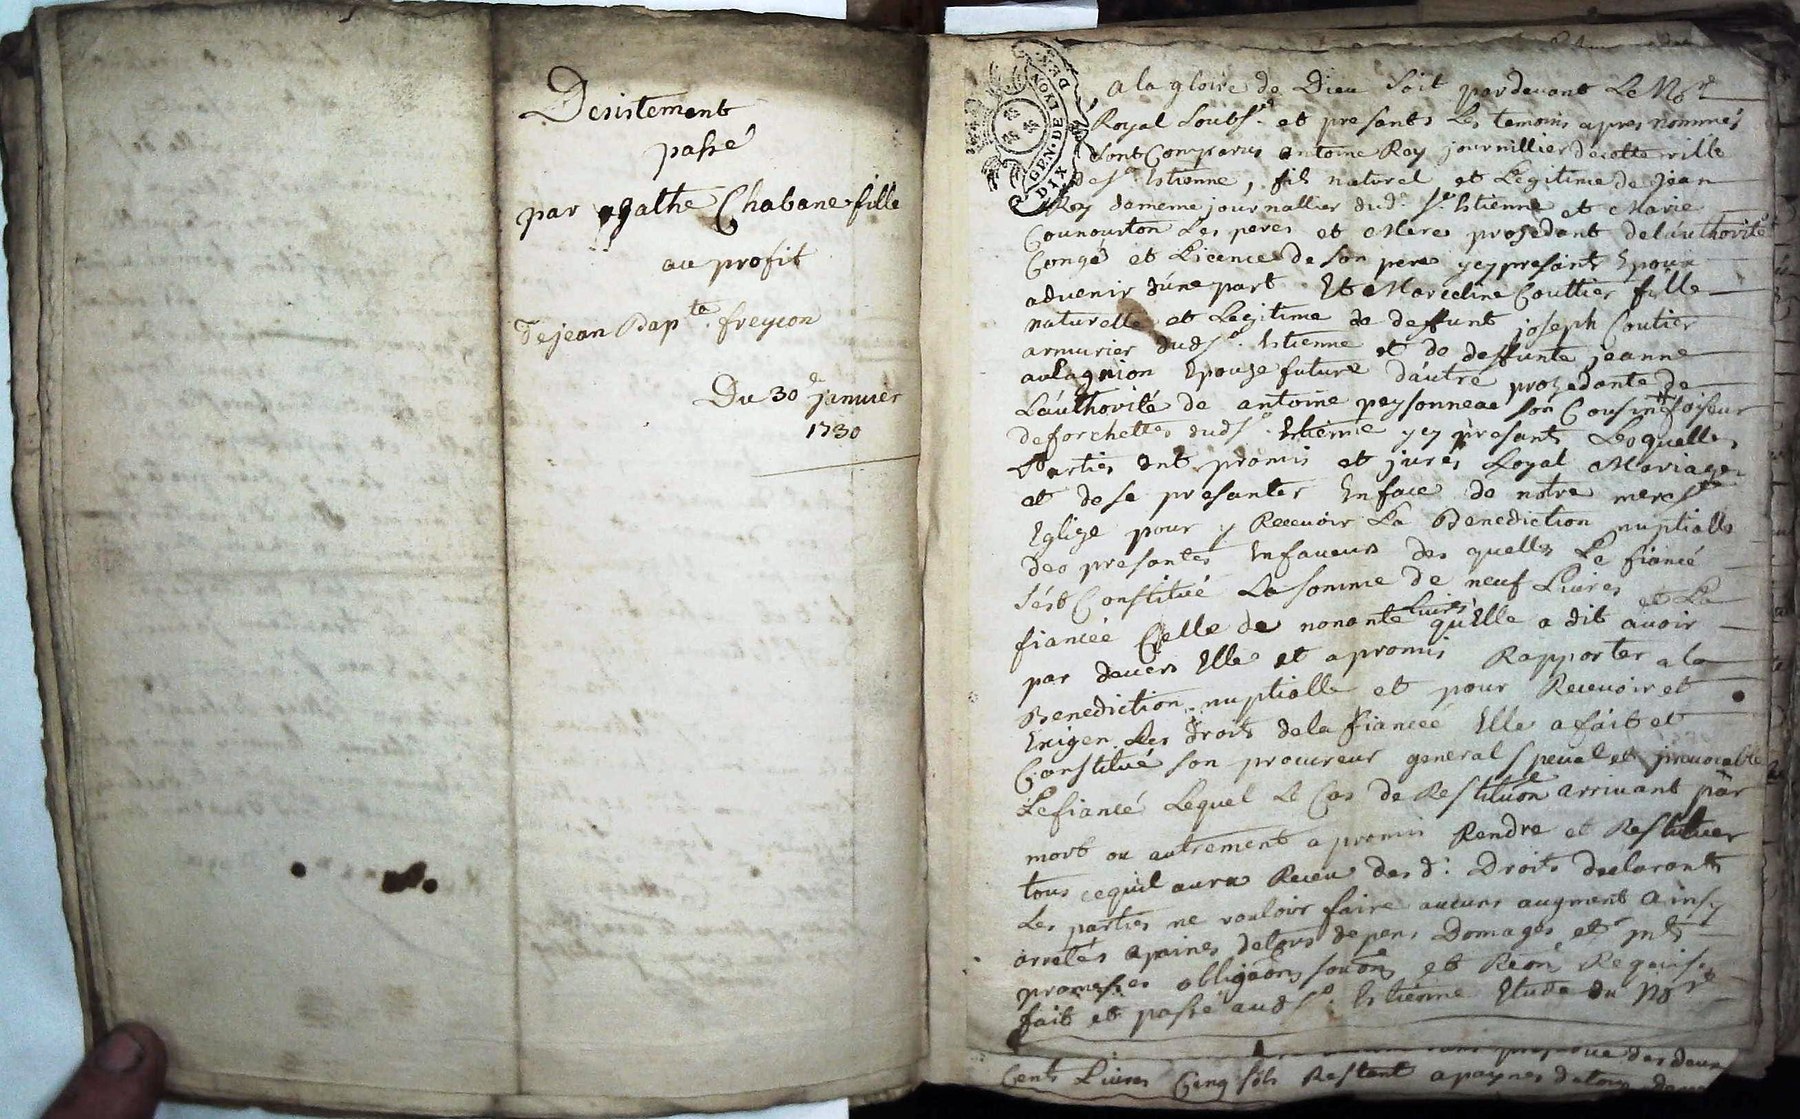 Desistement
passé
par agathe Chabane fille
au profit
de jean Bap.te freycon
Du 30e janvier
1730
GEN. DE LYON
DIX DEN
A la gloire de Dieu soit pardevant Le No.re
Royal soubs.t et presants Les temoins apres nommés
sont Comparus antoine Roy journillier de cette ville
de S.t Estienne, fils naturel et Legitime de jean
Roy de meme journallier dud. S.t Estienne et Marie
Les peres et Mere prosedant de l'authorité
Congé et Licence de son pere y cy presant Epoux
advenir d'une part. Et Marceline Couttier fille
naturelle et Legitime de deffunt joseph Coutier
armurier dud S.t Estienne et de deffunte jeanne
aulagnion Epouze future d'autre prozedante de
L'authorité de antoine peysonneau son Cousin faiseur
de forchettes dud S.t Estienne y cy presant Lesquelles
Parties ont promis et juré Loyal Mariage
et de se presanter En face de notre mere S.te
Eglize pour y Recevoir La Benediction nuptialle
des presantes En faveur des quelles Le fiancé
s'est Constitué La somme de neuf Livres et La
fiancée Celle de nonante Livres qu'Elle a dit avoir
par devers Elle et a promis Rapporter a la
Benediction nuptialle et pour Recevoir et
Exiger Les droits de la fiancée Elle a fait et
Constitué son procureur general special et irrevocable
Le fiancé Lequel Le Cas de Restituon arrivant par
mort ou autrement a promis Rendre et Restituer
tous ce quil aura Receu des d: Droits declarants
Les parties ne vouloir faire aucuns augment Ainsy
arretés a peines de tous depens Domages et jnts
promesses obligaons soumons et Reons Requises
fait et passé aud S.t Estienne Etude du No.re
des deux
Cents Livres Cinq sols Restant a payer a peines de tous